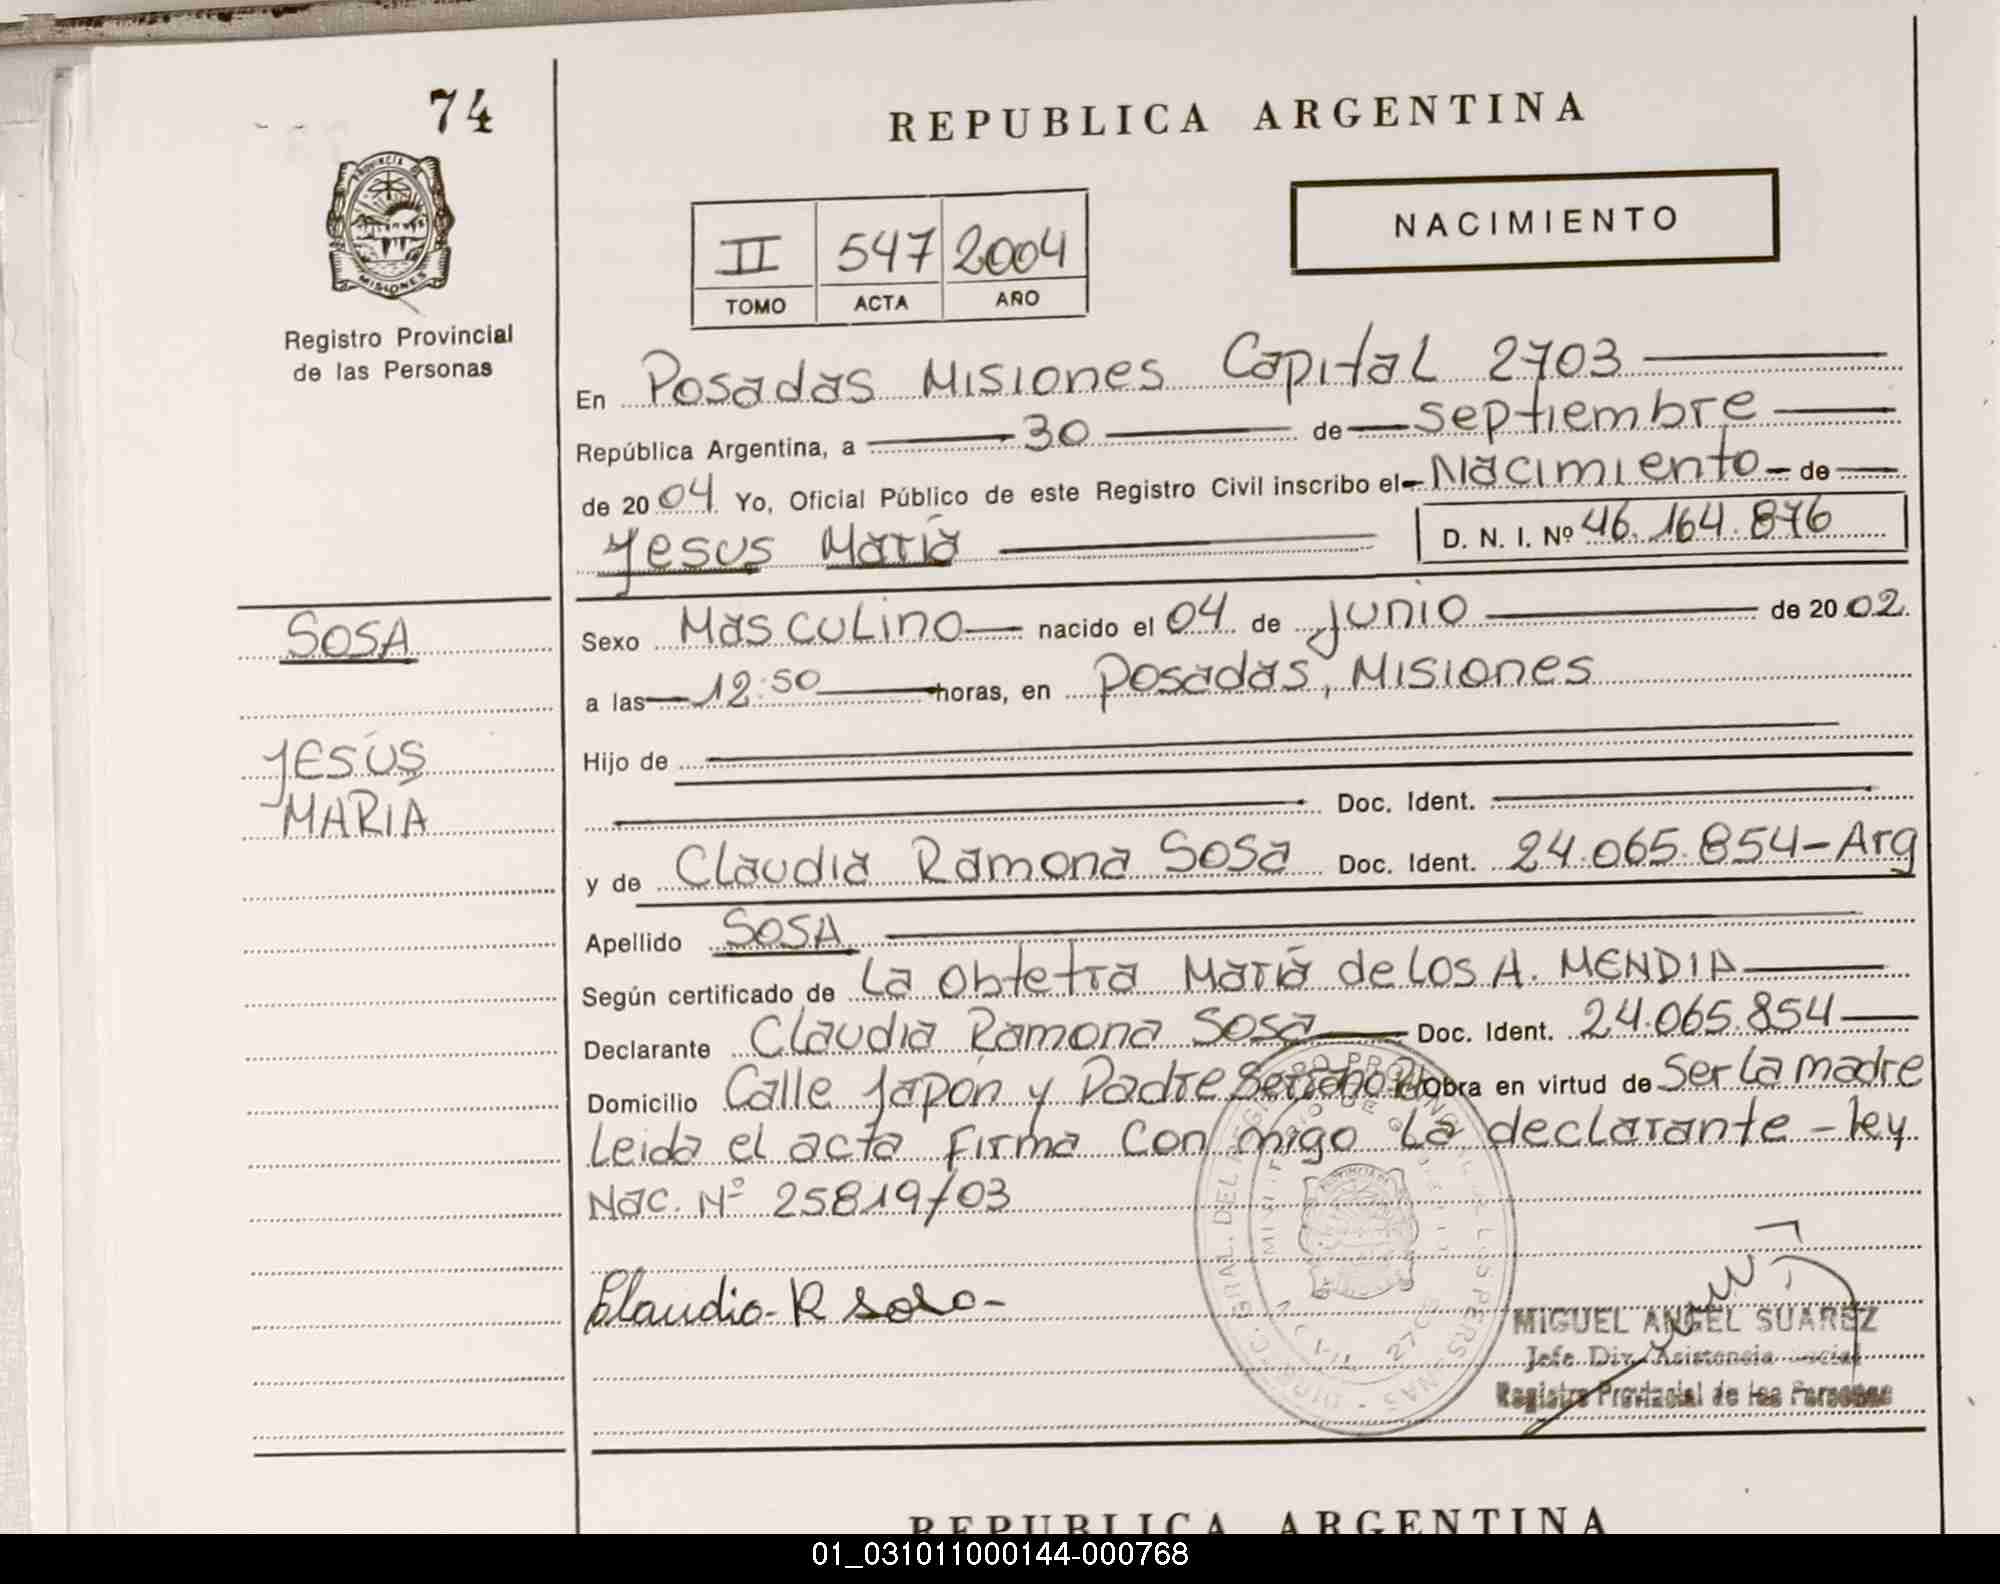 74
REPUBLICA ARGENTINA
NACIMIENTO
II 547 2004
TOMO ACTA AÑO
PROVINCIA DE
MISIONES
Registro Provincial
de las Personas
En Posadas Misiones Capital 2703
República Argentina, a 30 de septiembre
de 2004 Yo, Oficial Público de este Registro Civil inscribo el Nacimiento de
Jesus María
D. N. I. Nº 46.164.876
SOSA
JESÚS
MARIA
Sexo Masculino nacido el 04 de junio de 2002.
a las 12:50 horas, en Posadas, Misiones
Hijo de
Doc. Ident.
y de Claudia Ramona Sosa Doc. Ident. 24.065.854-Arg
Apellido SOSA
Según certificado de La Obtetra María de los A. MENDIA
Declarante Claudia Ramona Sosa Doc. Ident. 24.065.854
Domicilio Calle Japón y Padre Obra en virtud de Ser La madre
Leida el acta firma con migo La declarante - ley
Nac. Nº 25819/03
Claudia R Sosa
MIGUEL ANGEL SUAREZ
Jefe Div. Asistencia Social
Registro Provincial de las Personas
REPUBLICA ARGENTINA
01_031011000144-000768